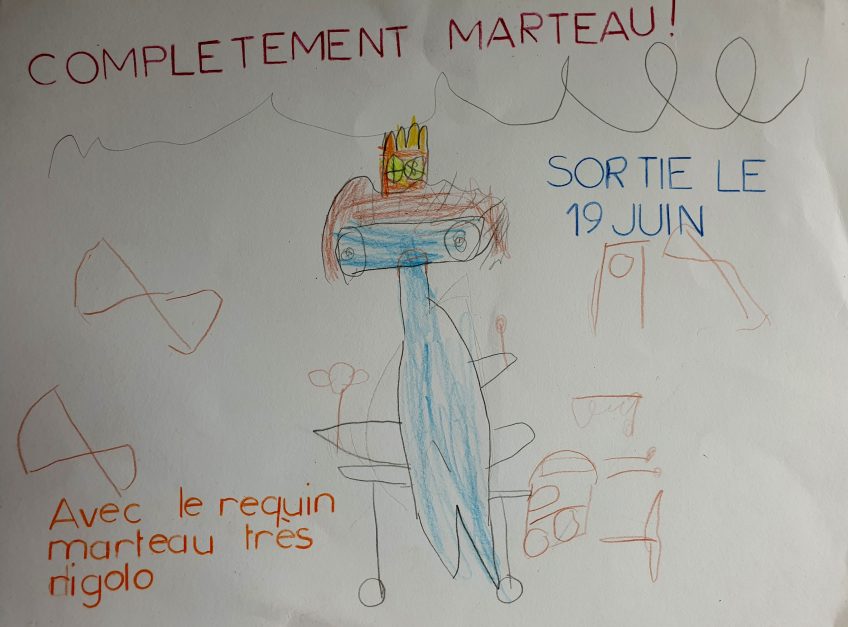 COMPLETEMENT MARTEAU!
SORTIE LE
19 JUIN
Avec le requin
marteau très
rigolo